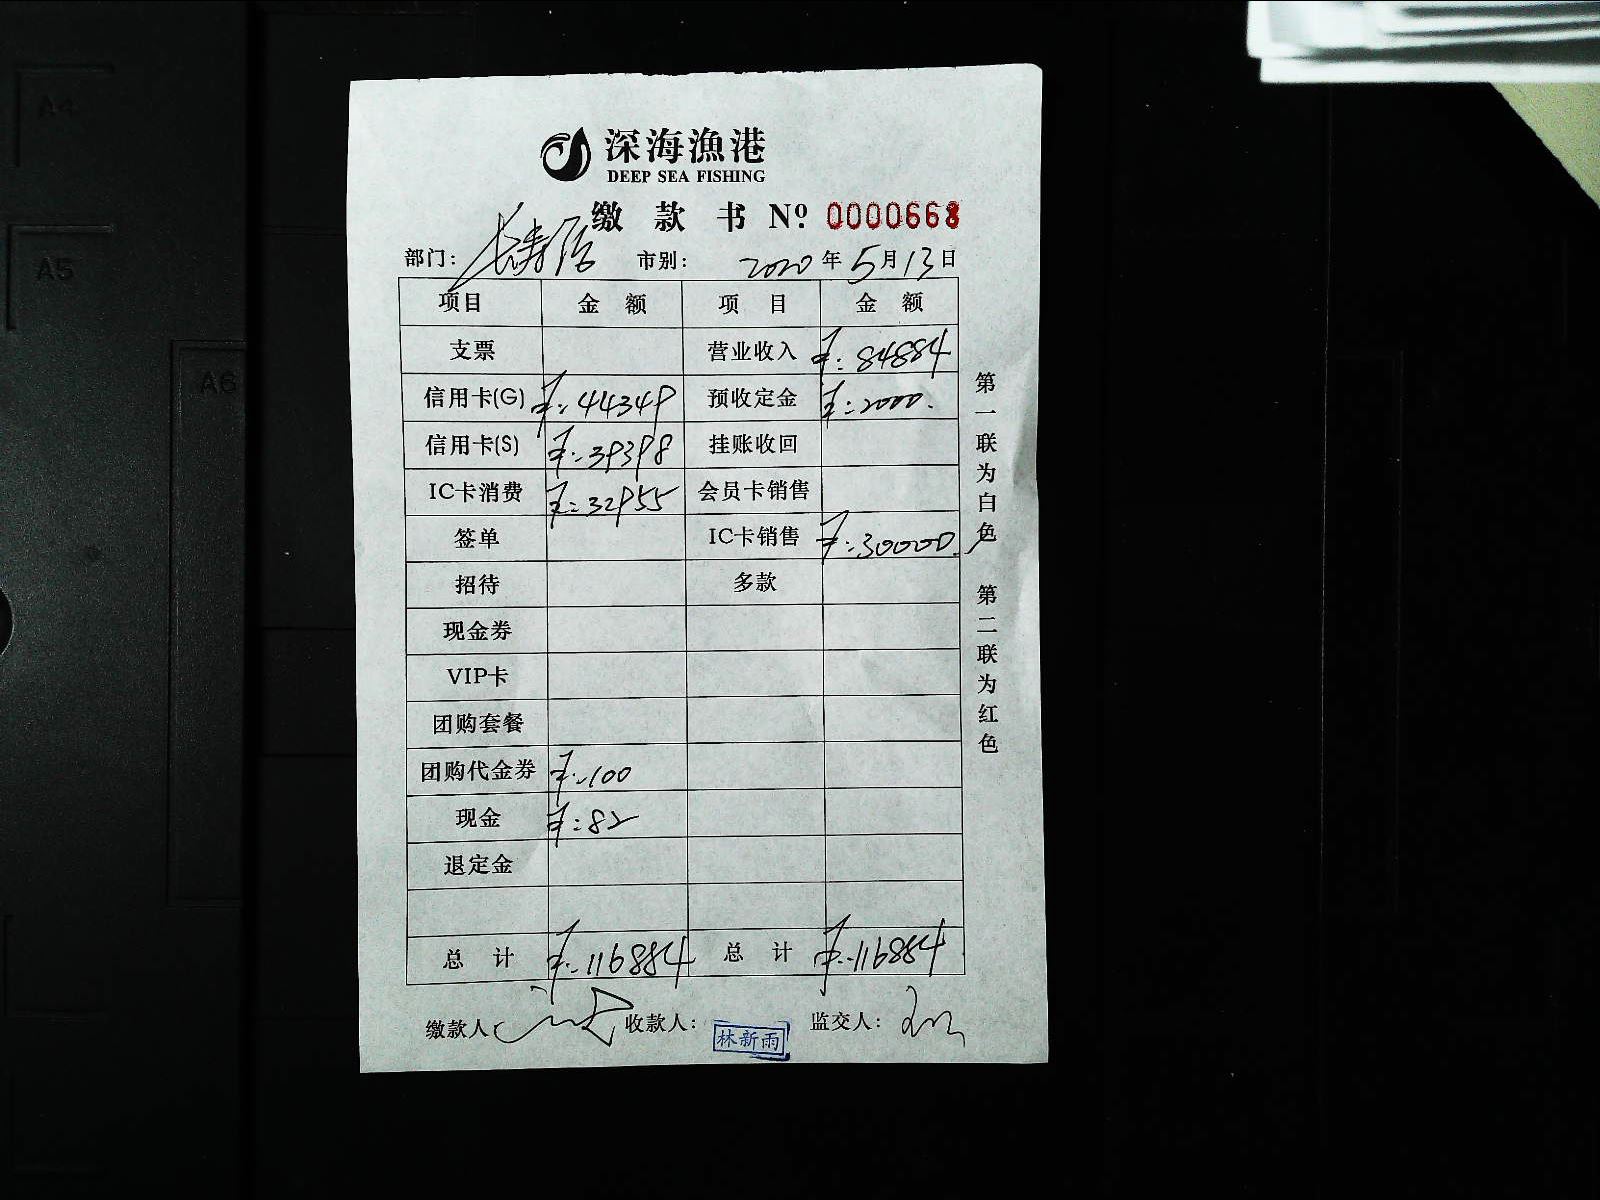 A4
A5
A6
深海漁港
DEEP SEA FISHING
缴 款 书 Nº 0000668
部门: 长寿路 市别: 2020 年 5 月 13 日
项目 金 额 项 目 金 额
支票 营业收入 ¥:84884
信用卡(G) ¥:44349 预收定金 ¥:2000.
信用卡(S) ¥:39398 挂账收回
IC卡消费 ¥:32955 会员卡销售
签单 IC卡销售 ¥:30000.
招待 多款
现金券
VIP卡
团购套餐
团购代金券 ¥:100
现金 ¥:82
退定金
总 计 ¥:116884 总 计 ¥:116884
缴款人: 收款人: 林新雨 监交人:
第一联为白色 第二联为红色